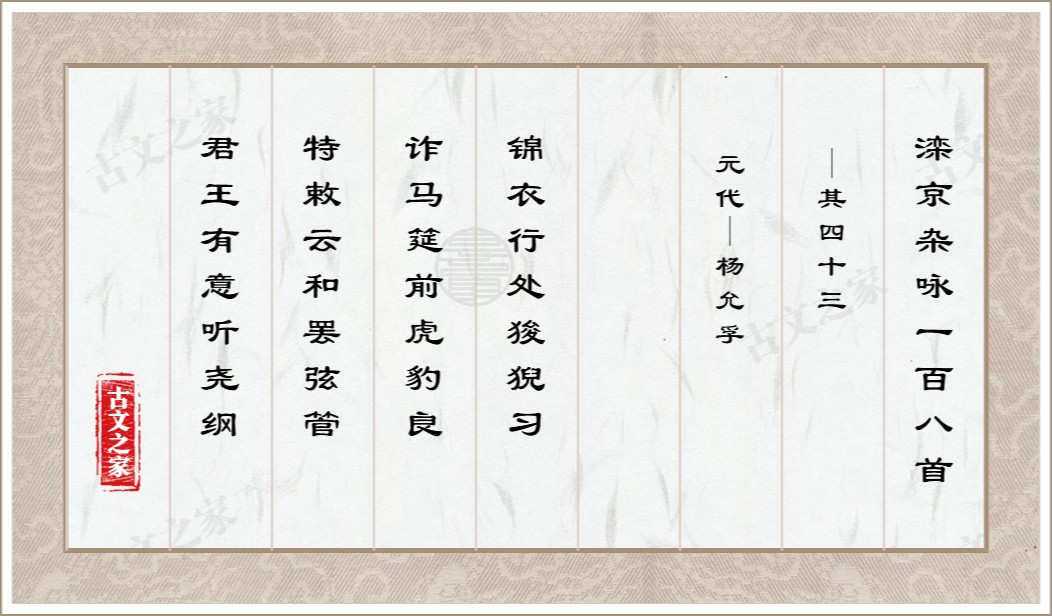 滦京杂咏一百八首
—其四十三
元代—杨允孚
锦衣行处狻猊习
诈马筵前虎豹良
特敕云和罢弦管
君王有意听尧纲
古文之家
古文之家
古文之家
古文之家